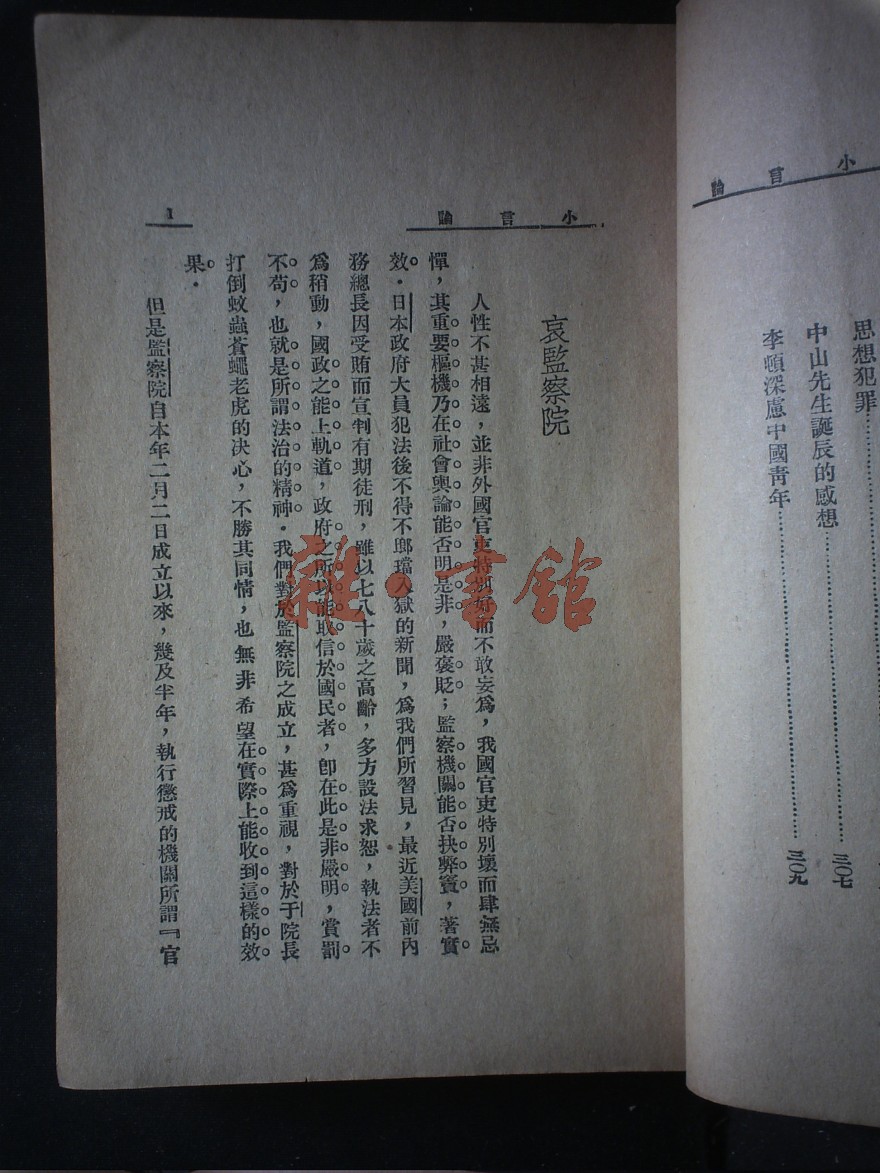 小言論
思想犯罪
中山先生誕辰的感想…………三〇七
李頓深慮中國青年…………三〇九
小言論
哀監察院
人性不甚相遠，並非外國官吏特別好而不敢妄為，我國官吏特別壞而肆無忌
憚，其重要樞機乃在社會輿論能否明是非，嚴褒貶；監察機關能否抉弊竇，著實
效。日本政府大員犯法後不得不鄉璫入獄的新聞，為我們所習見，最近美國前內
務總長因受賄而宣判有期徒刑，雖以七八十歲之高齡，多方設法求恕，執法者不
為稍動，國政之能上軌道，政府之所以能取信於國民者，卽在此是非嚴明，賞罰
不苟，也就是所謂法治的精神。我們對於監察院之成立，甚為重視，對於于院長
打倒蚊蟲蒼蠅老虎的決心，不勝其同情，也無非希望在實際上能收到這樣的效
果。
但是監察院自本年二月二日成立以來，幾及半年，執行懲戒的機關所謂『官
1
雜·書館